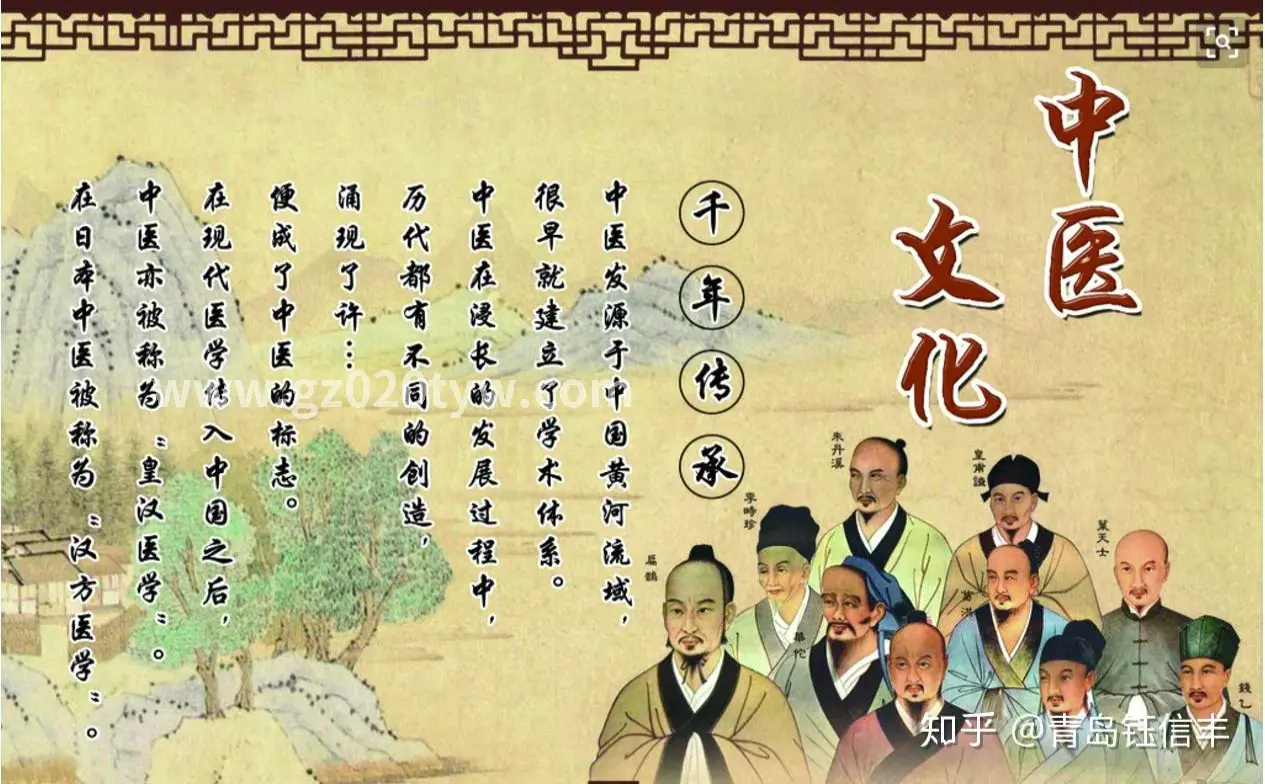 中医
文化
千年传承
中医发源于中国黄河流域，
很早就建立了学术体系。
中医在浸长的发展过程中，
历代都有不同的创造，
涌现了许…
便成了中医的标志。
在现代医学传入中国之后，
中医亦被称为“皇汉医学”。
在日本中医被称为“汉方医学”。
朱丹溪
皇甫謐
李時珍
葉天士
扁鵲
葛洪
華佗
錢乙
www.gz020tyw.com
知乎 @青岛钰信丰